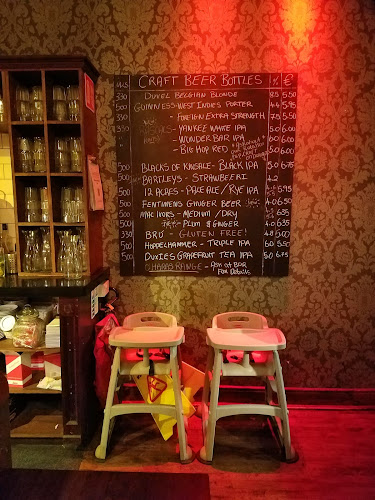 MLS CRAFT BEER BOTTLES % €
330 DUVEL BELGIAN BLONDE 8.5 5.50
500 GUINNESS-WEST INDIES PORTER 5.95
- FOREIGN EXTRA STRENGTH 7.5 5.50
- YANKEE WHITE IPA 5.0 6.00
- WONDER BAR IPA 6.00
- BIG HOP RED 5.0 6.00
500 BLACKS OF KINSALE - BLACK IPA 5.0 6.75
BARTLEYS - STRAWBEERI 4.2
500 12 ACRES - PALE ALE / RYE IPA 5.95
500 FENTIMENS GINGER BEER 6.50
500 MAC IVORS - MEDIUM / DRY 6.55
500 - PLUM & GINGER 4.0 6.35
BRÚ - GLUTEN FREE! 4.8 5.00
500 HOPPELHAMMER - TRIPLE IPA 5.50
500 DUXIES GRAPEFRUIT TEA IPA 5.75
O HARAS RANGE - ASK AT BAR
FOR DETAILS